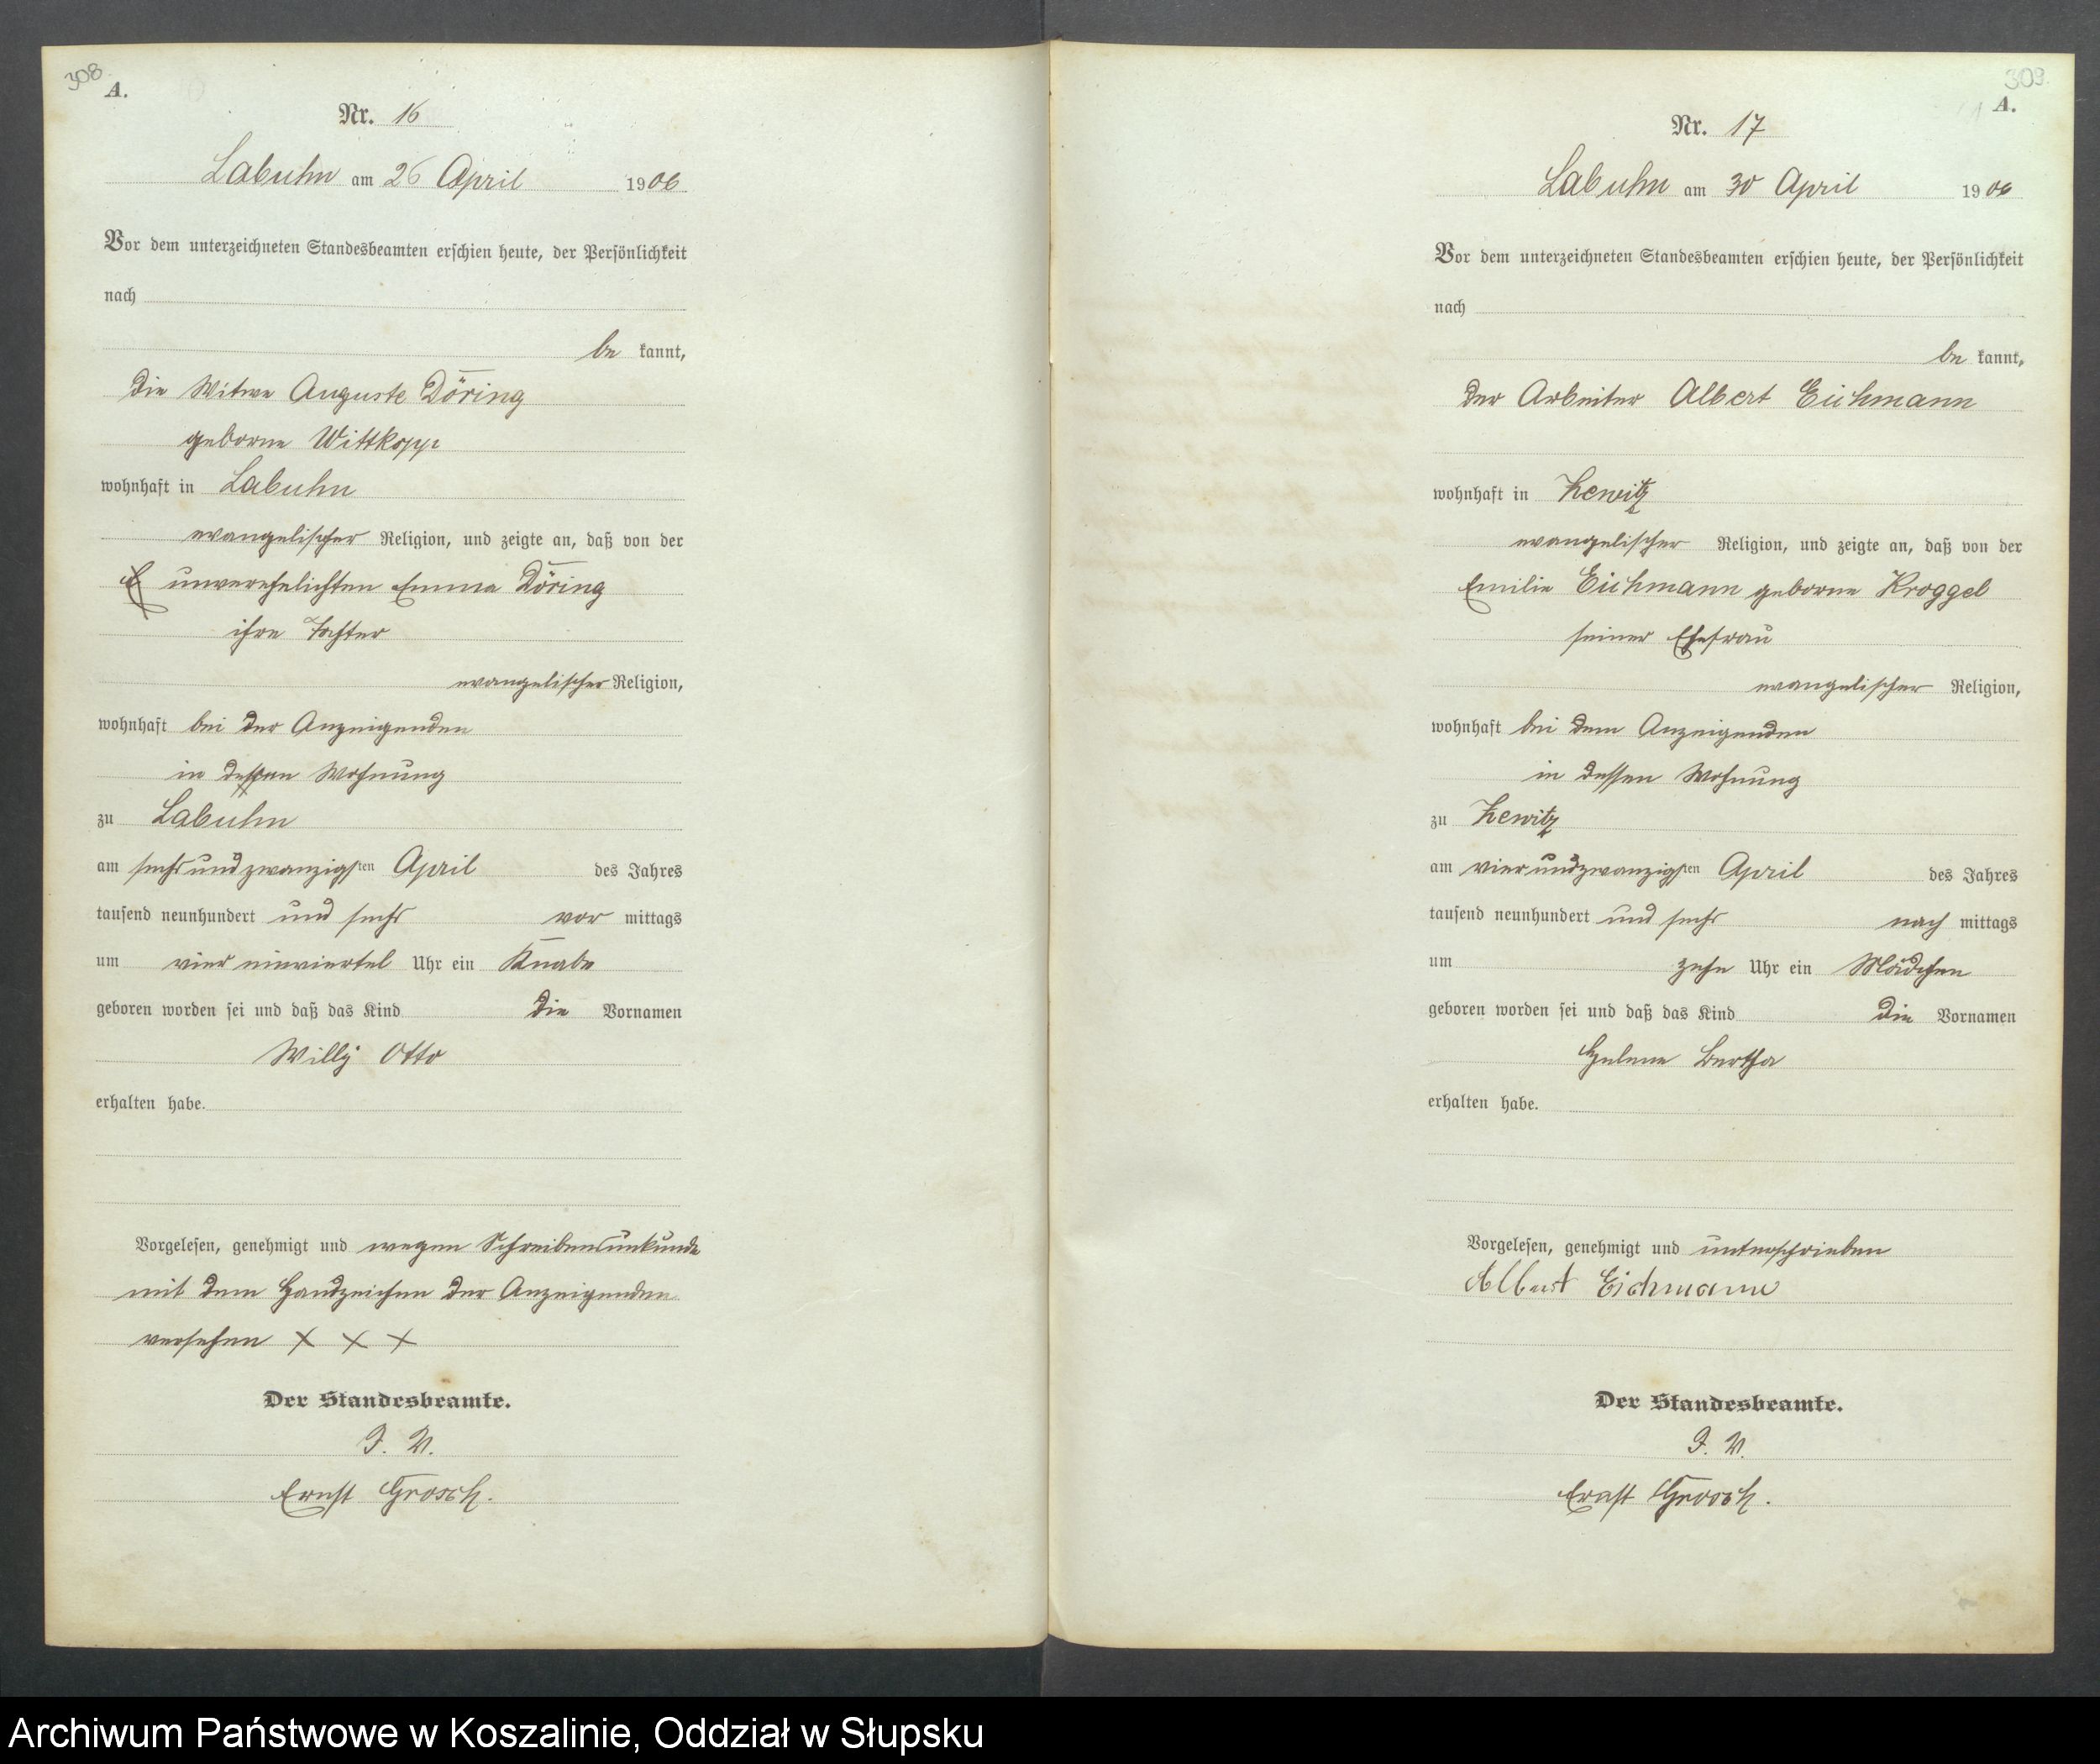 308
A.
Nr. 16
Labuhn am 26 April 1906
Vor dem unterzeichneten Standesbeamten erschien heute, der Persönlichkeit
nach
be kannt,
die Witwe Auguste Döring
geborne Wittkopp
wohnhaft in Labuhn
evangelischer Religion, und zeigte an, daß von der
E unverehelichten Emma Döring
ihre Tochter
evangelischer Religion,
wohnhaft bei der Anzeigenden
in dessen Wohnung
zu Labuhn
am sechsundzwanzigsten April des Jahres
tausend neunhundert und sechs vor mittags
um vier einviertel Uhr ein Knabe
geboren worden sei und daß das Kind die Vornamen
Willy Otto
erhalten habe.
Vorgelesen, genehmigt und wegen Schreibensunkunde
mit dem Handzeichen der Anzeigenden
versehen X X X
Der Standesbeamte.
J. V.
Ernst Grosch.
309.
A.
Nr. 17
Labuhn am 30 April 1906
Vor dem unterzeichneten Standesbeamten erschien heute, der Persönlichkeit
nach
be kannt,
der Arbeiter Albert Eichmann
wohnhaft in Zewitz
evangelischer Religion, und zeigte an, daß von der
Emilie Eichmann geborne Kroggel
seiner Ehefrau
evangelischer Religion,
wohnhaft bei dem Anzeigenden
in dessen Wohnung
zu Zewitz
am vierundzwanzigsten April des Jahres
tausend neunhundert und sechs nach mittags
um zehn Uhr ein Mädchen
geboren worden sei und daß das Kind die Vornamen
Helene Bertha
erhalten habe.
Vorgelesen, genehmigt und unterschrieben
Albert Eichmann
Der Standesbeamte.
J. V.
Ernst Grosch.
Archiwum Państwowe w Koszalinie, Oddział w Słupsku